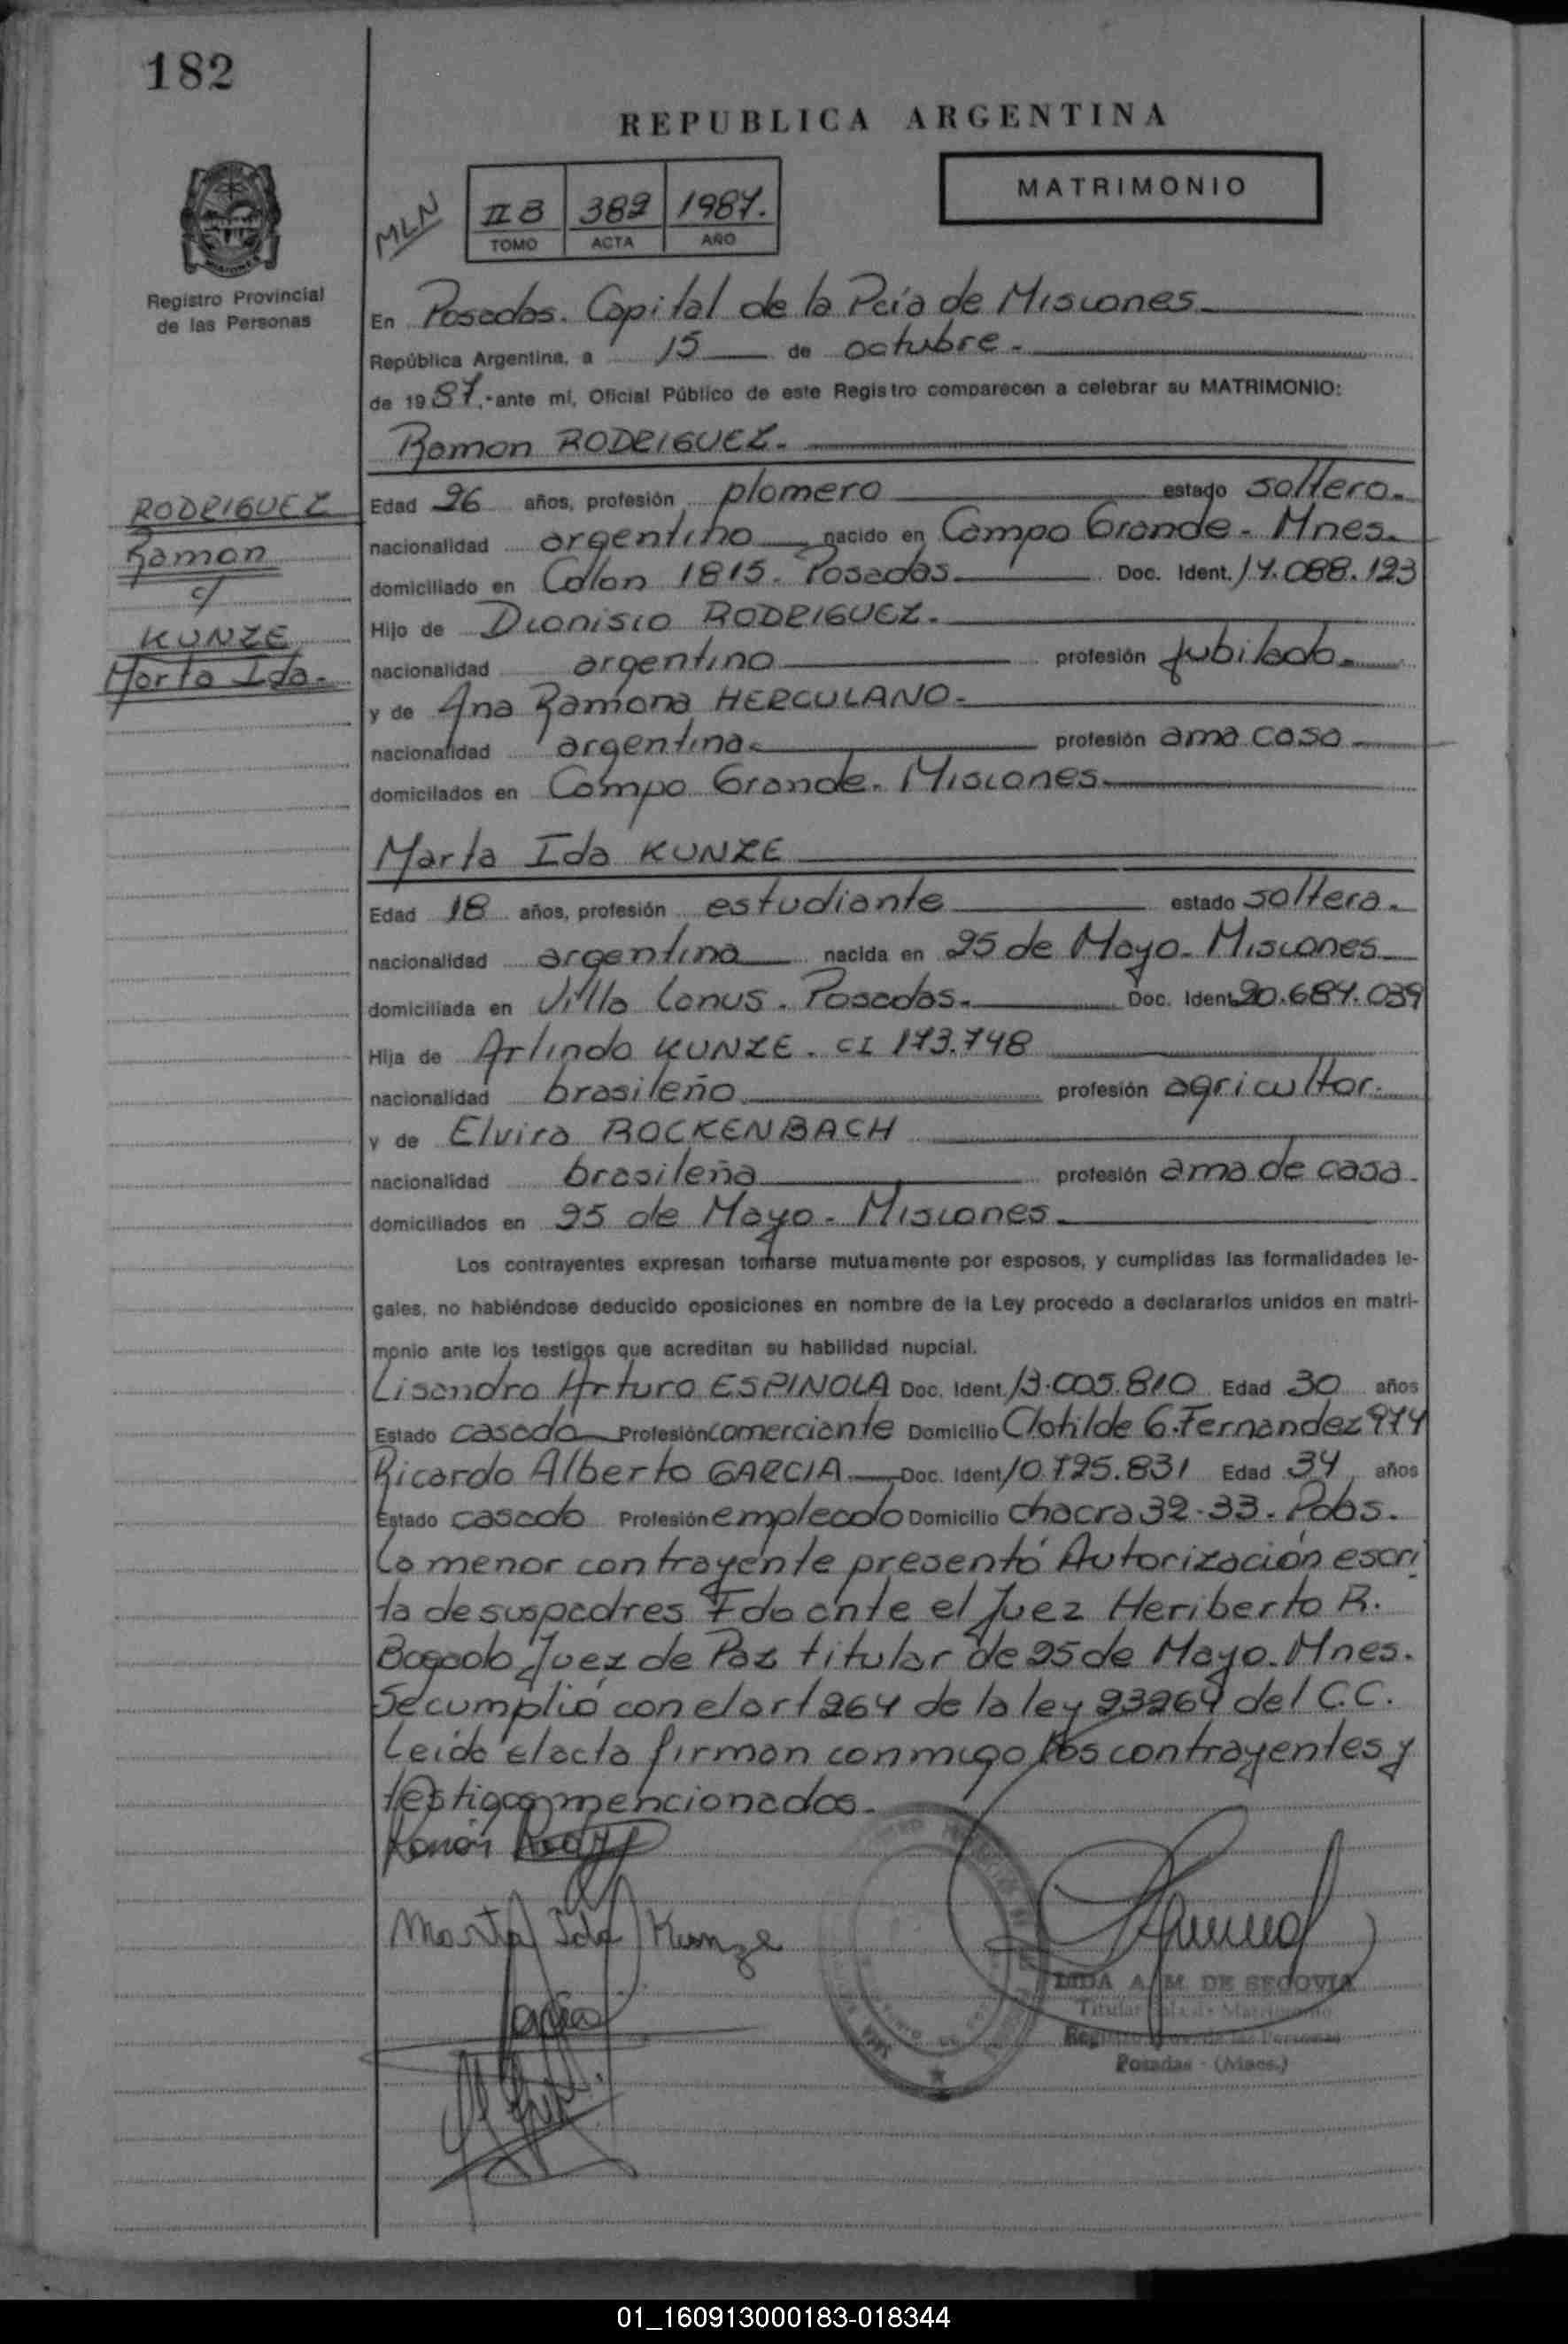 182
REPUBLICA ARGENTINA
MATRIMONIO
MLN
II B 382 1987.
TOMO ACTA AÑO
MISIONES
Registro Provincial
de las Personas
En Posadas. Capital de la Pcia de Misiones
República Argentina, a 15 de octubre.
de 1987.- ante mi, Oficial Público de este Registro comparecen a celebrar su MATRIMONIO:
Ramon RODRIGUEZ.
RODRIGUEZ
Ramon
c/
KUNZE
Marta Ida.
Edad 26 años, profesión plomero estado soltero.
nacionalidad argentino nacido en Campo Grande - Mnes.
domiciliado en Colon 1815. Posadas. Doc. Ident. 14.088.123
Hijo de Dionisio RODRIGUEZ.
nacionalidad argentino profesión jubilado.
y de Ana Ramona HERCULANO.
nacionalidad argentina. profesión ama casa
domicilados en Campo Grande. Misiones.
Marta Ida KUNZE
Edad 18 años, profesión estudiante estado soltera.
nacionalidad argentina nacida en 25 de Mayo. Misiones
domiciliada en Villa Lanus. Posadas. Doc. Ident 20.687.039
Hija de Arlindo KUNZE. CI 173.748
nacionalidad brasileño profesión agricultor.
y de Elvira ROCKENBACH
nacionalidad brasileña profesión ama de casa.
domiciliados en 25 de Mayo. Misiones
Los contrayentes expresan tomarse mutuamente por esposos, y cumplidas las formalidades le-
gales, no habiéndose deducido oposiciones en nombre de la Ley procedo a declararlos unidos en matri-
monio ante los testigos que acreditan su habilidad nupcial.
Lisandro Arturo ESPINOLA Doc. Ident. 13.005.810 Edad 30 años
Estado casado Profesión comerciante Domicilio Clotilde G. Fernandez 974
Ricardo Alberto GARCIA Doc. Ident 10.725.831 Edad 34 años
Estado casado Profesión empleado Domicilio chacra 32-33. Pdas.
La menor contrayente presentó Autorización escri
ta de sus padres Fdo ante el Juez Heriberto R.
Bogado Juez de Paz titular de 25 de Mayo. Mnes.
Se cumplió con el art 264 de la ley 23264 del C.C.
Leída el acta firman conmigo los contrayentes y
testigos mencionados.
Ramón
Marta Ida Kunze
LIDA A. M. DE SEGOVIA
Titular Sala de Matrimonio
Registro Prov. de las Personas
Posadas - (Mnes.)
01_160913000183-018344